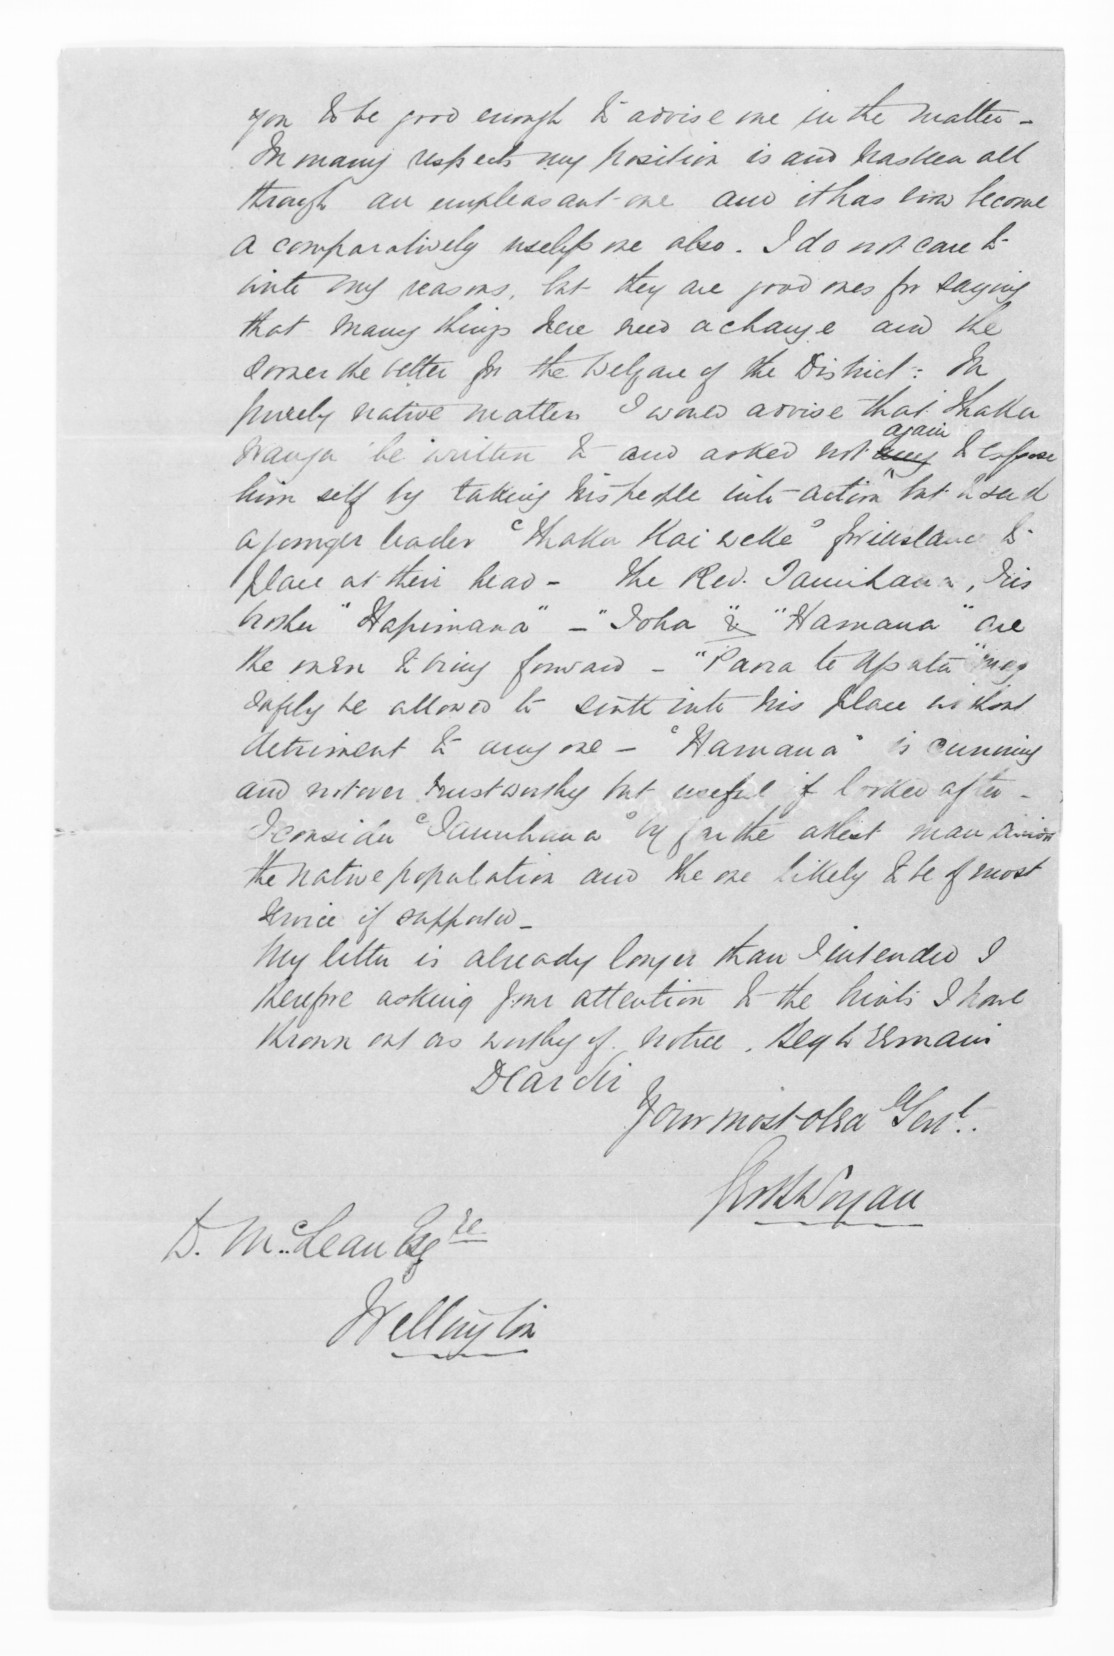 you to be good enough to advise me in the matter -
In many respects my position is and has been all
through an unpleasant one and it has now become
a comparatively useless one also. I do not care to
write my reasons, but they are good ones for saying
that many things here need a change and the
sooner the better for the Welfare of the District: In
purely native matters I would advise that Ihaka
Whanga be written to and asked not again to expose
him self by taking his people into action but to send
a younger leader "Ihaka Kai weke" for instance to
place at their head - The Rev. Tamihana, his
brother "Hapimana" - "Toha" & "Hamana" are
the men to bring forward - "Paora te Apatu" may
safely be allowed to sink into his place without
detriment to any one - "Hamana" is cunning
and not over trustworthy but useful if looked after -
I consider "Tamihana" by far the ablest man
the native population and the one likely to be of most
service if supported -
My letter is already longer than I intended I
therefore asking your attention to the hints I have
thrown out as worthy of notice. Beg to remain
Dear Sir
Your most obed Servt.
D. McLean Esqre
Wellington